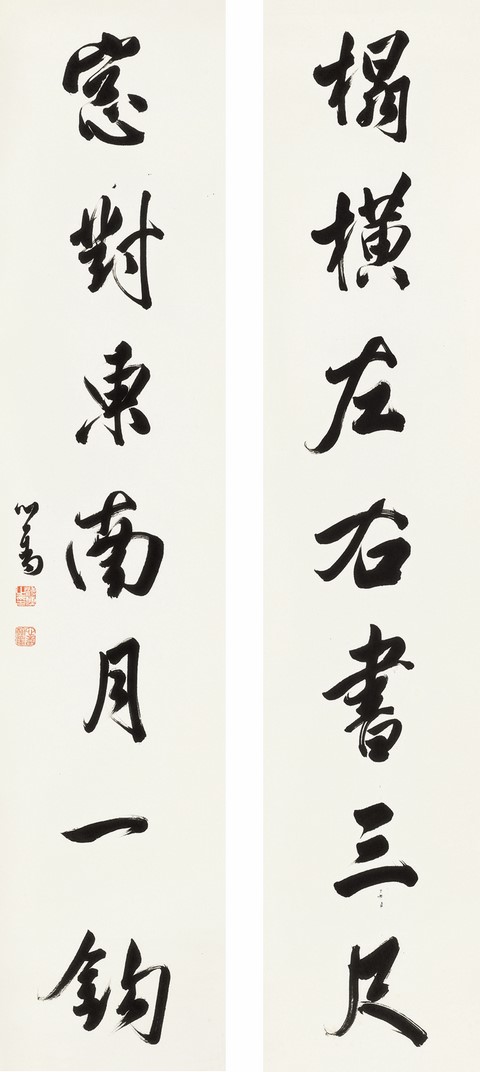 榻橫左右書三尺
窓對東南月一鈎
心畬